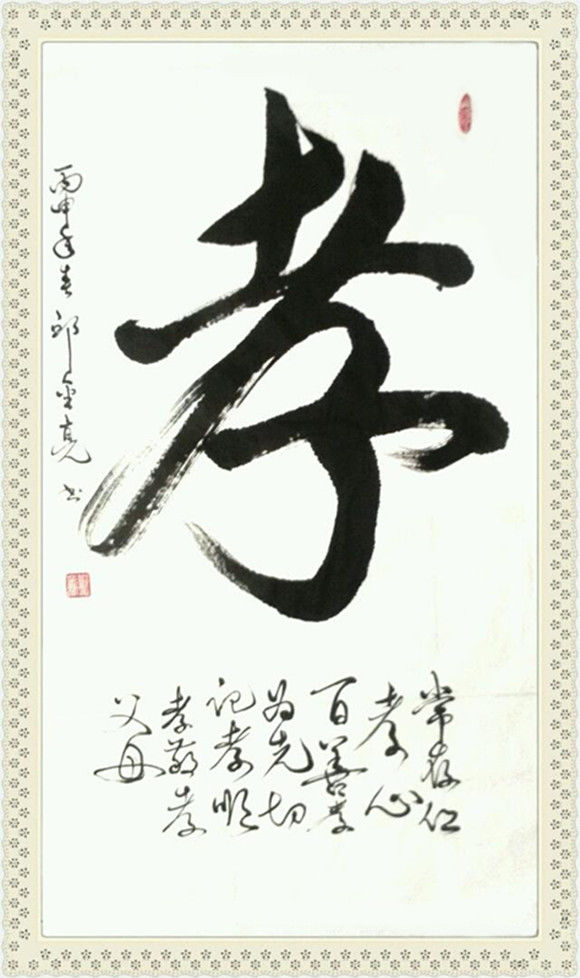 孝
常存仁
孝心
百善孝
为先切
记孝顺
孝敬孝
父母
丙申年春邱金亮书